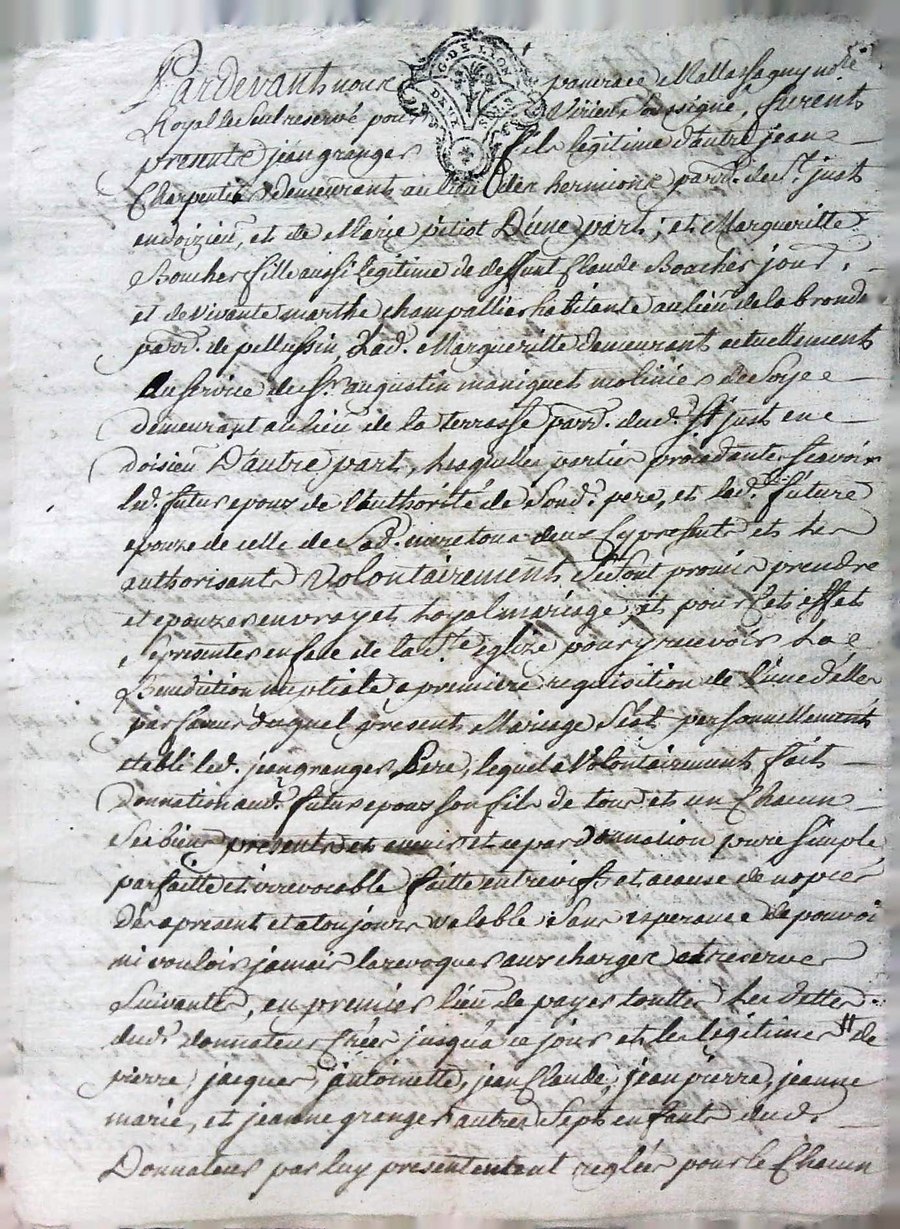 Pardevant nous pancrace Mallassagny nore
Royal le seul reservé pour Virieu soussigné, furent
G. DE LION
presents jean granger fils legitime d'autre jean
Charpentier demeurant au lieu des hermions parr. de St. just
en doizieu, et de Marie petiot D'une part; et Margueritte
Boucher fille aussi legitime de deffunt Claude Boucher jour.
et de vivante marthe champallier habitante au lieu de la bronde
parr. de pellussin, Lad. Margueritte demeurant actuellement
au service de Sr. augustin maniquet molinier de soye
demeurant au lieu de la terrasse parr. dud. St just en
doisieu D'autre part, lesquelles parties procedantes scavoir
led. futur epoux de l'authorité de sond. pere, et lad. future
epouze de celle de sad. mere tous deux cy presents et les
authorisants Volontairement se sont promis prendre
et epouzer en vray et loyal mariage, et pour cet effet
se presenter en face de la Ste eglize pour y recevoir la
Benediction nuptiale a premiere requisition de l'une d'elles
par faveur duquel present Mariage s'est personnellement
etabli led. jean granger Pere, lequel a Volontairement fait
donnation aud. futur epoux son fils de tous et un Chacun
ses biens presents et avenir et ce par donnation pure simple
parfaitte et irrevocable faitte entre vifs et a cause de nopces
dès a present et a toujours valable sans esperance de pouvoir
ni vouloir jamais la revoquer aux charges et reserves
suivantes, en premier lieu de payer touttes les dettes
dud. donnateur créés jusqu'a ce jour et les legitimes # de
pierre, jacques, antoinette, jean Claude, jean pierre, jeanne
marie, et jeanne granger autres sept enfants dud.
Donnateur par luy presentement reglées pour le Chacun